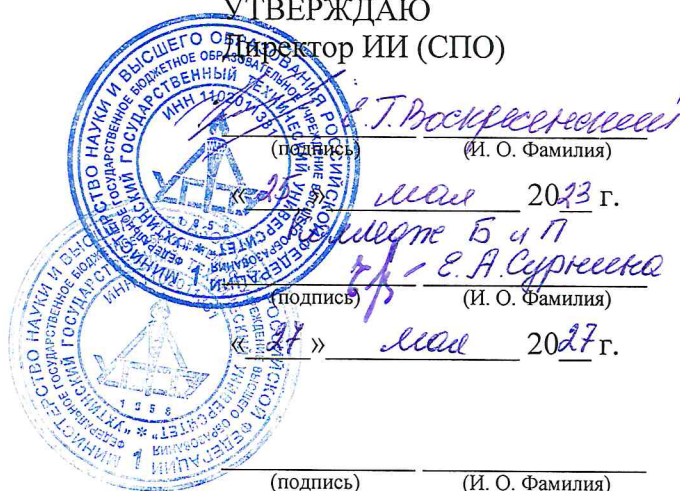 УТВЕРЖДАЮ
Директор ИИ (СПО)
Е.Т. Воскресенский
(подпись) (И. О. Фамилия)
«25» мая 2023 г.
Колледж Б и П
Е.А. Сурнина
(подпись) (И. О. Фамилия)
«27» мая 2027 г.
(подпись) (И. О. Фамилия)
МИНИСТЕРСТВО НАУКИ И ВЫСШЕГО ОБРАЗОВАНИЯ РОССИЙСКОЙ ФЕДЕРАЦИИ
ФЕДЕРАЛЬНОЕ ГОСУДАРСТВЕННОЕ БЮДЖЕТНОЕ ОБРАЗОВАТЕЛЬНОЕ УЧРЕЖДЕНИЕ ВЫСШЕГО ОБРАЗОВАНИЯ
УХТИНСКИЙ ГОСУДАРСТВЕННЫЙ ТЕХНИЧЕСКИЙ УНИВЕРСИТЕТ
1958
1
МИНИСТЕРСТВО НАУКИ И РОССИЙСКОЙ ФЕДЕРАЦИИ
"УХТИНСКИЙ ГОСУДАРСТВЕННЫЙ УНИВЕРСИТЕТ"
1958
1